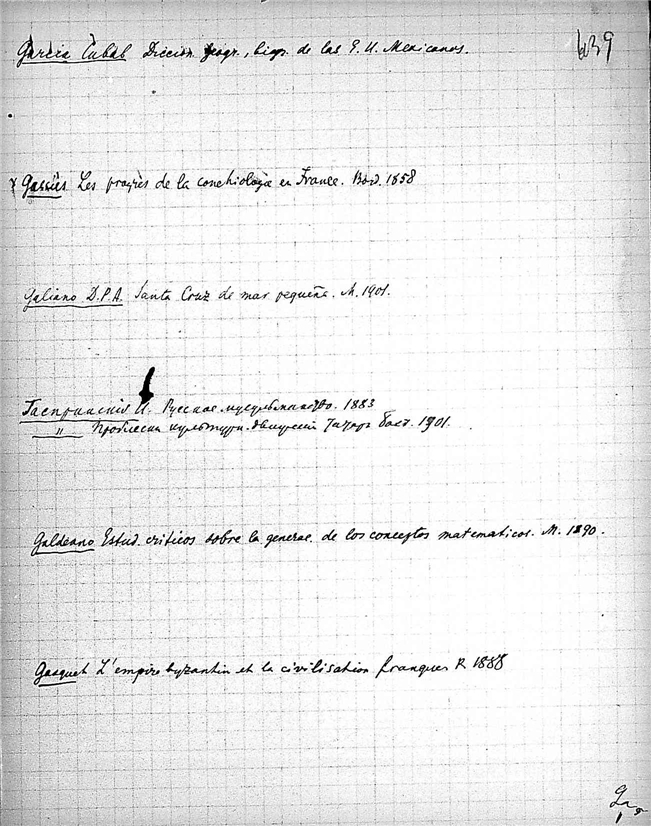 Garcia Cubas Diccion geogr., biogr. de las E. U. Mexicanos. 639
Gassies Les progrès de la conchiologie en France. Bord. 1858
Galiano D.P.A. Santa Cruz de mar pequeña. M. 1901.
Гаспринскій И. Русское мусульманство. 1883
" культурн. 1901.
Galdeano Estud. criticos sobre la generac. de los conceptos matematicos. M. 1890.
Gasquet L'empire byzantin et la civilisation franque P. 1888
Ga